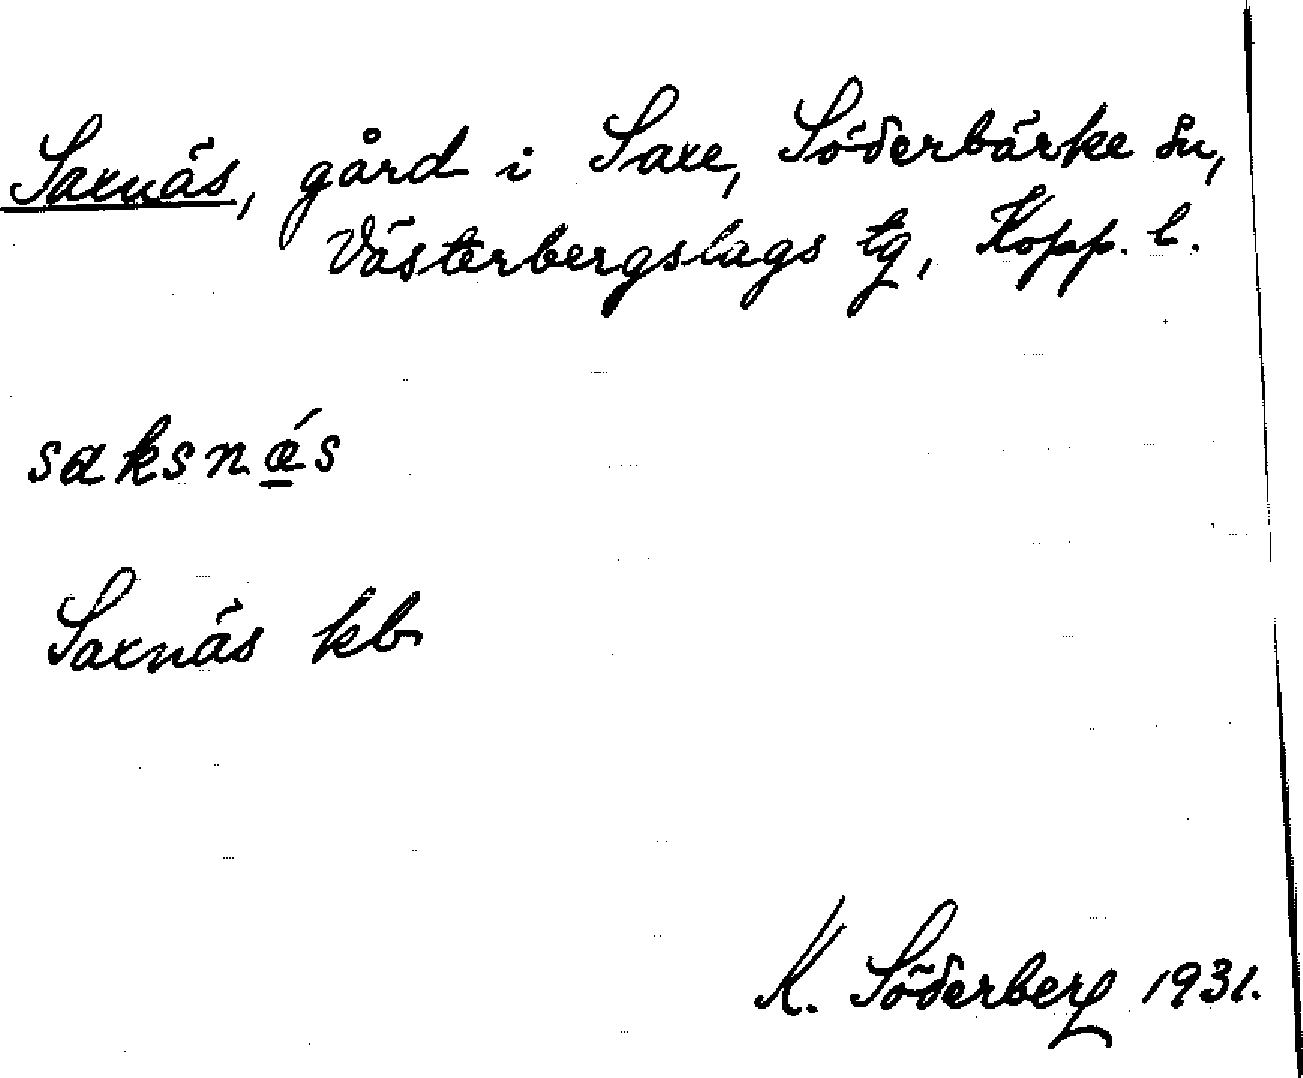 Saxnäs, gård i Saxe, Söderbärke sn,
Västerbergslags tg, Kopp. l.
saksnä́s
Saxnäs kb
K. Söderberg 1931.